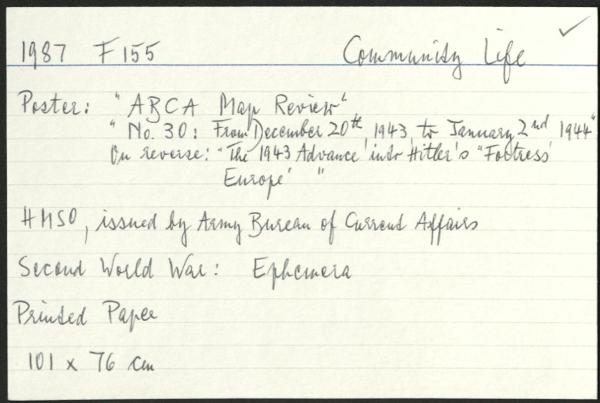 1987 F 155 Community Life
Poster: "ABCA Map Review"
"No. 30: From December 20th, 1943, to January 2nd 1944"
On reverse: "The 1943 Advance into Hitler's "Fortress
Europe' "
HMSO, issued by Army Bureau of Current Affairs
Second World War: Ephemera
Printed Paper
101 x 76 cm